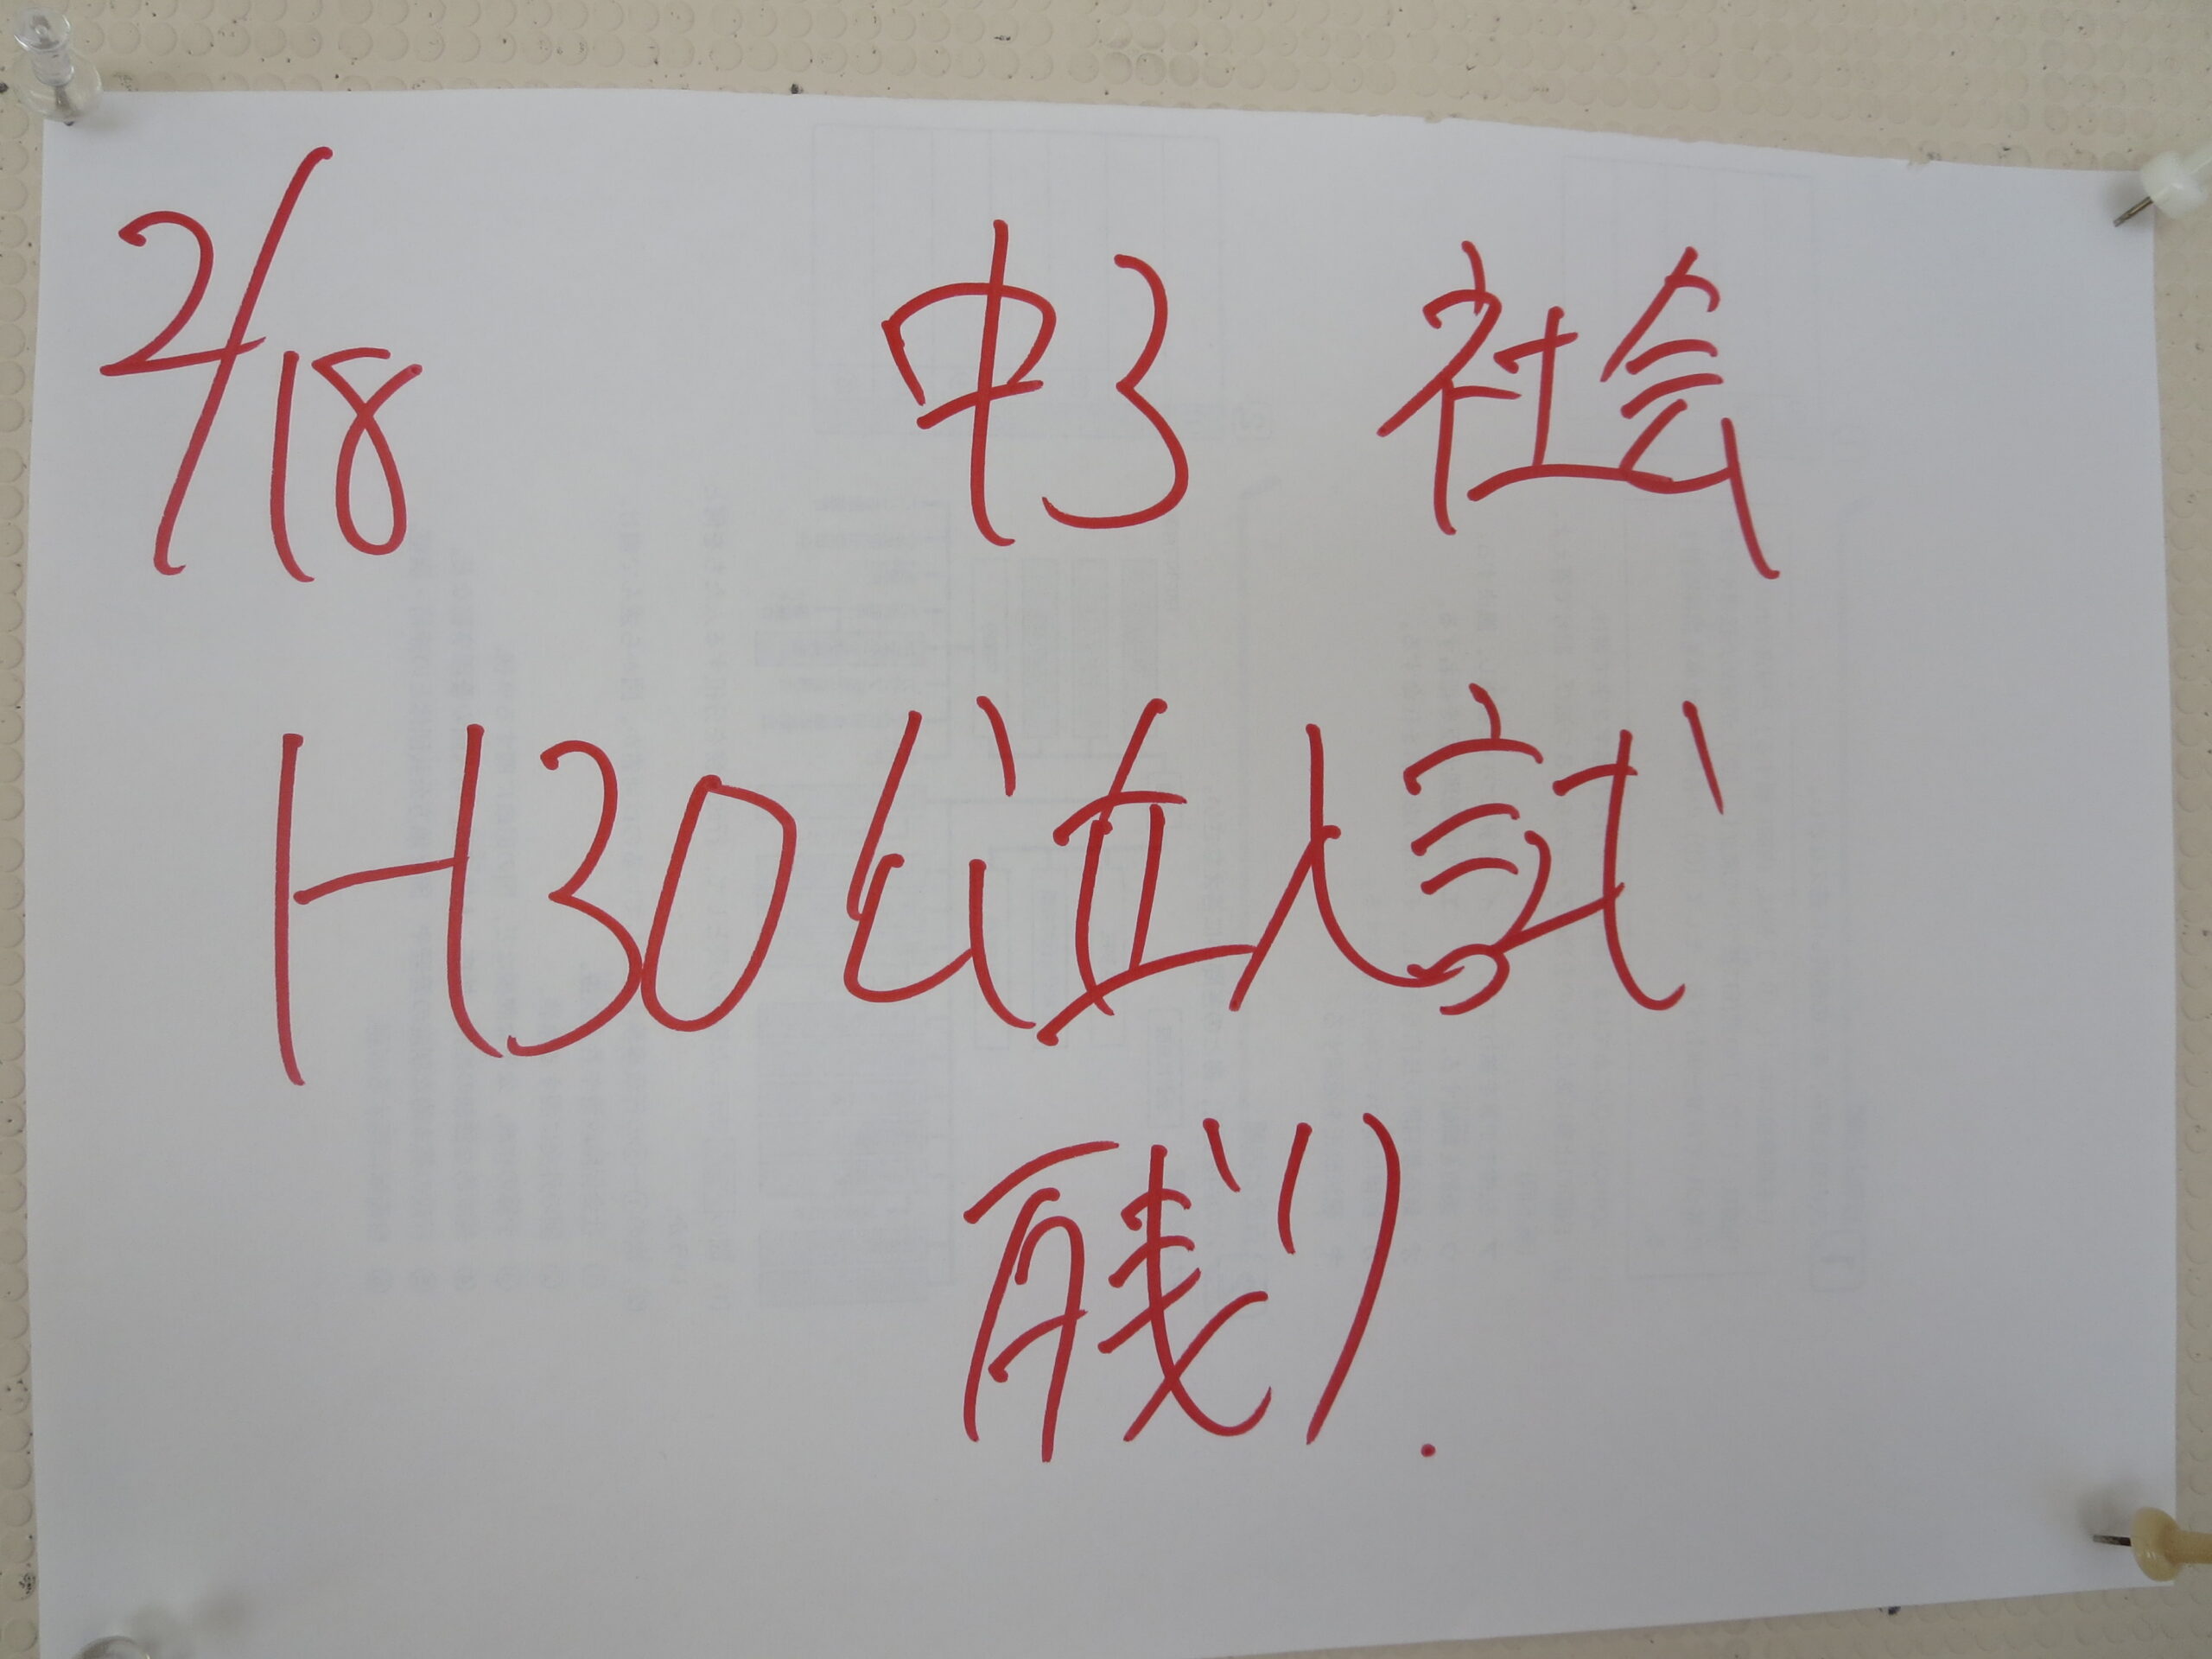 2/18 中3 社会
H30公立入試
残り.